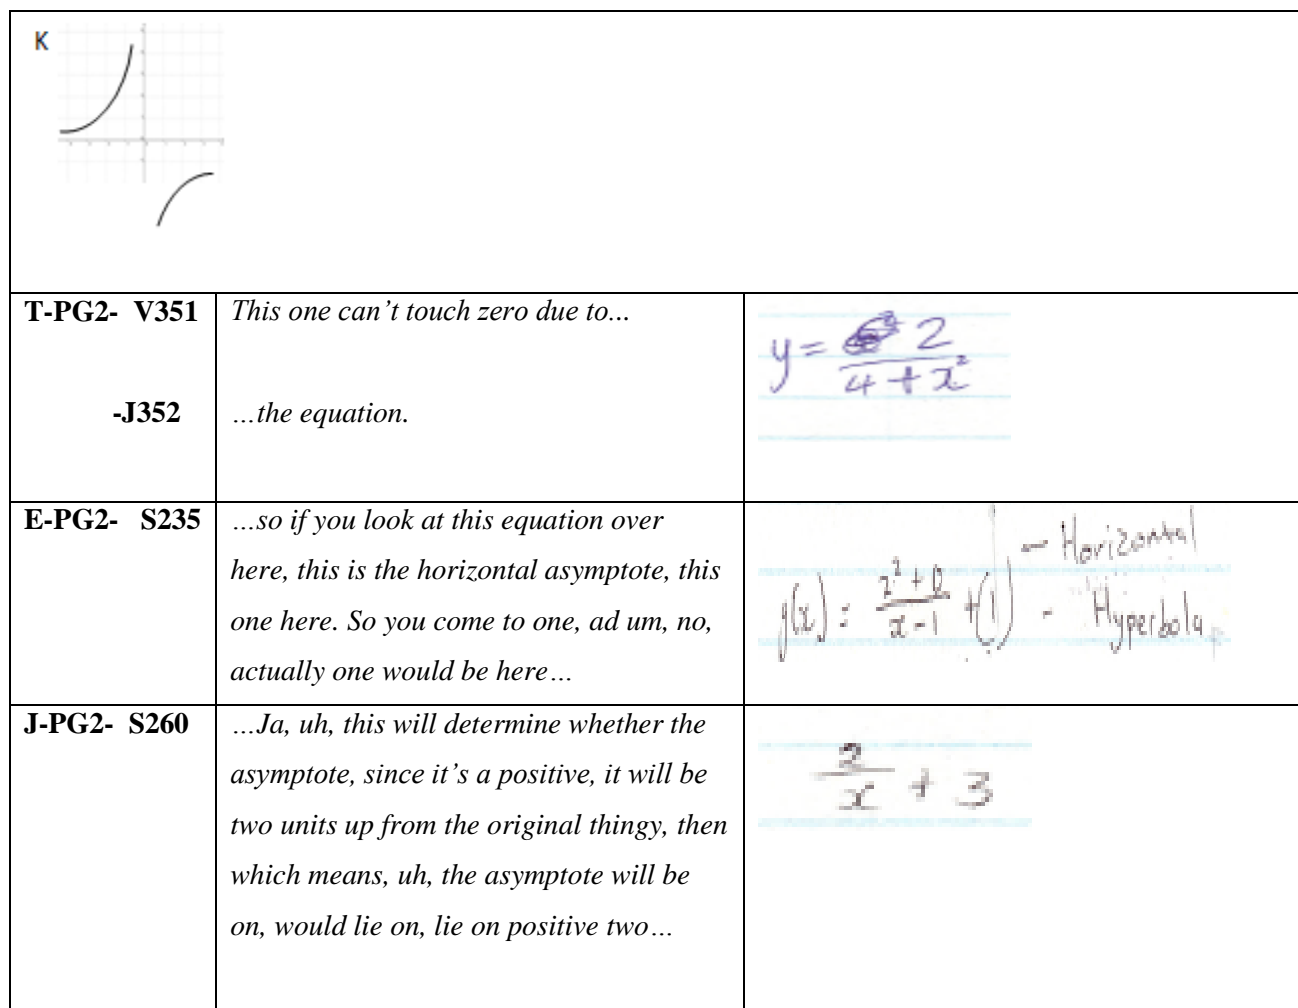 K
T-PG2- V351
This one can’t touch zero due to...
y = 2
4 + x²
-J352
…the equation.
E-PG2- S235
…so if you look at this equation over
here, this is the horizontal asymptote, this
one here. So you come to one, ad um, no,
actually one would be here…
- Horizontal
x - 1 + (1) - Hyperbola
J-PG2- S260
…Ja, uh, this will determine whether the
asymptote, since it’s a positive, it will be
two units up from the original thingy, then
which means, uh, the asymptote will be
on, would lie on, lie on positive two…
x + 3